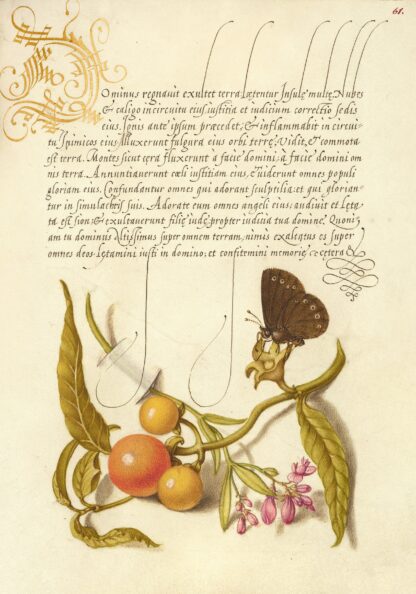 61.
Dominus regnauit exultet terra lætentur Insulę multę. Nubes
& caligo in circuitu eius iustitia et iudicium correctio sedis
eius. Ignis ante ipsum præcedet, & inflammabit in circui-
tu Inimicos eius. Illuxerunt fulgura eius orbi terrę. Vidit, & commota
est terra. Montes sicut cera fluxerunt à facie domini: à facie domini om
nis terra. Annuntiauerunt cœli iustitiam eius, & uiderunt omnes populi
gloriam eius. Confundantur omnes qui adorant sculptilia: et qui glorian-
tur in simulachris suis. Adorate eum omnes angeli eius: audiuit et Lęta
ta est sion. & exultauerunt filię iudę: propter iudicia tua domine. Quoni
am tu dominus altissimus super omnem terram, nimis exaltatus es super
omnes deos. Lętamini iusti in domino: et confitemini memorię & cętera